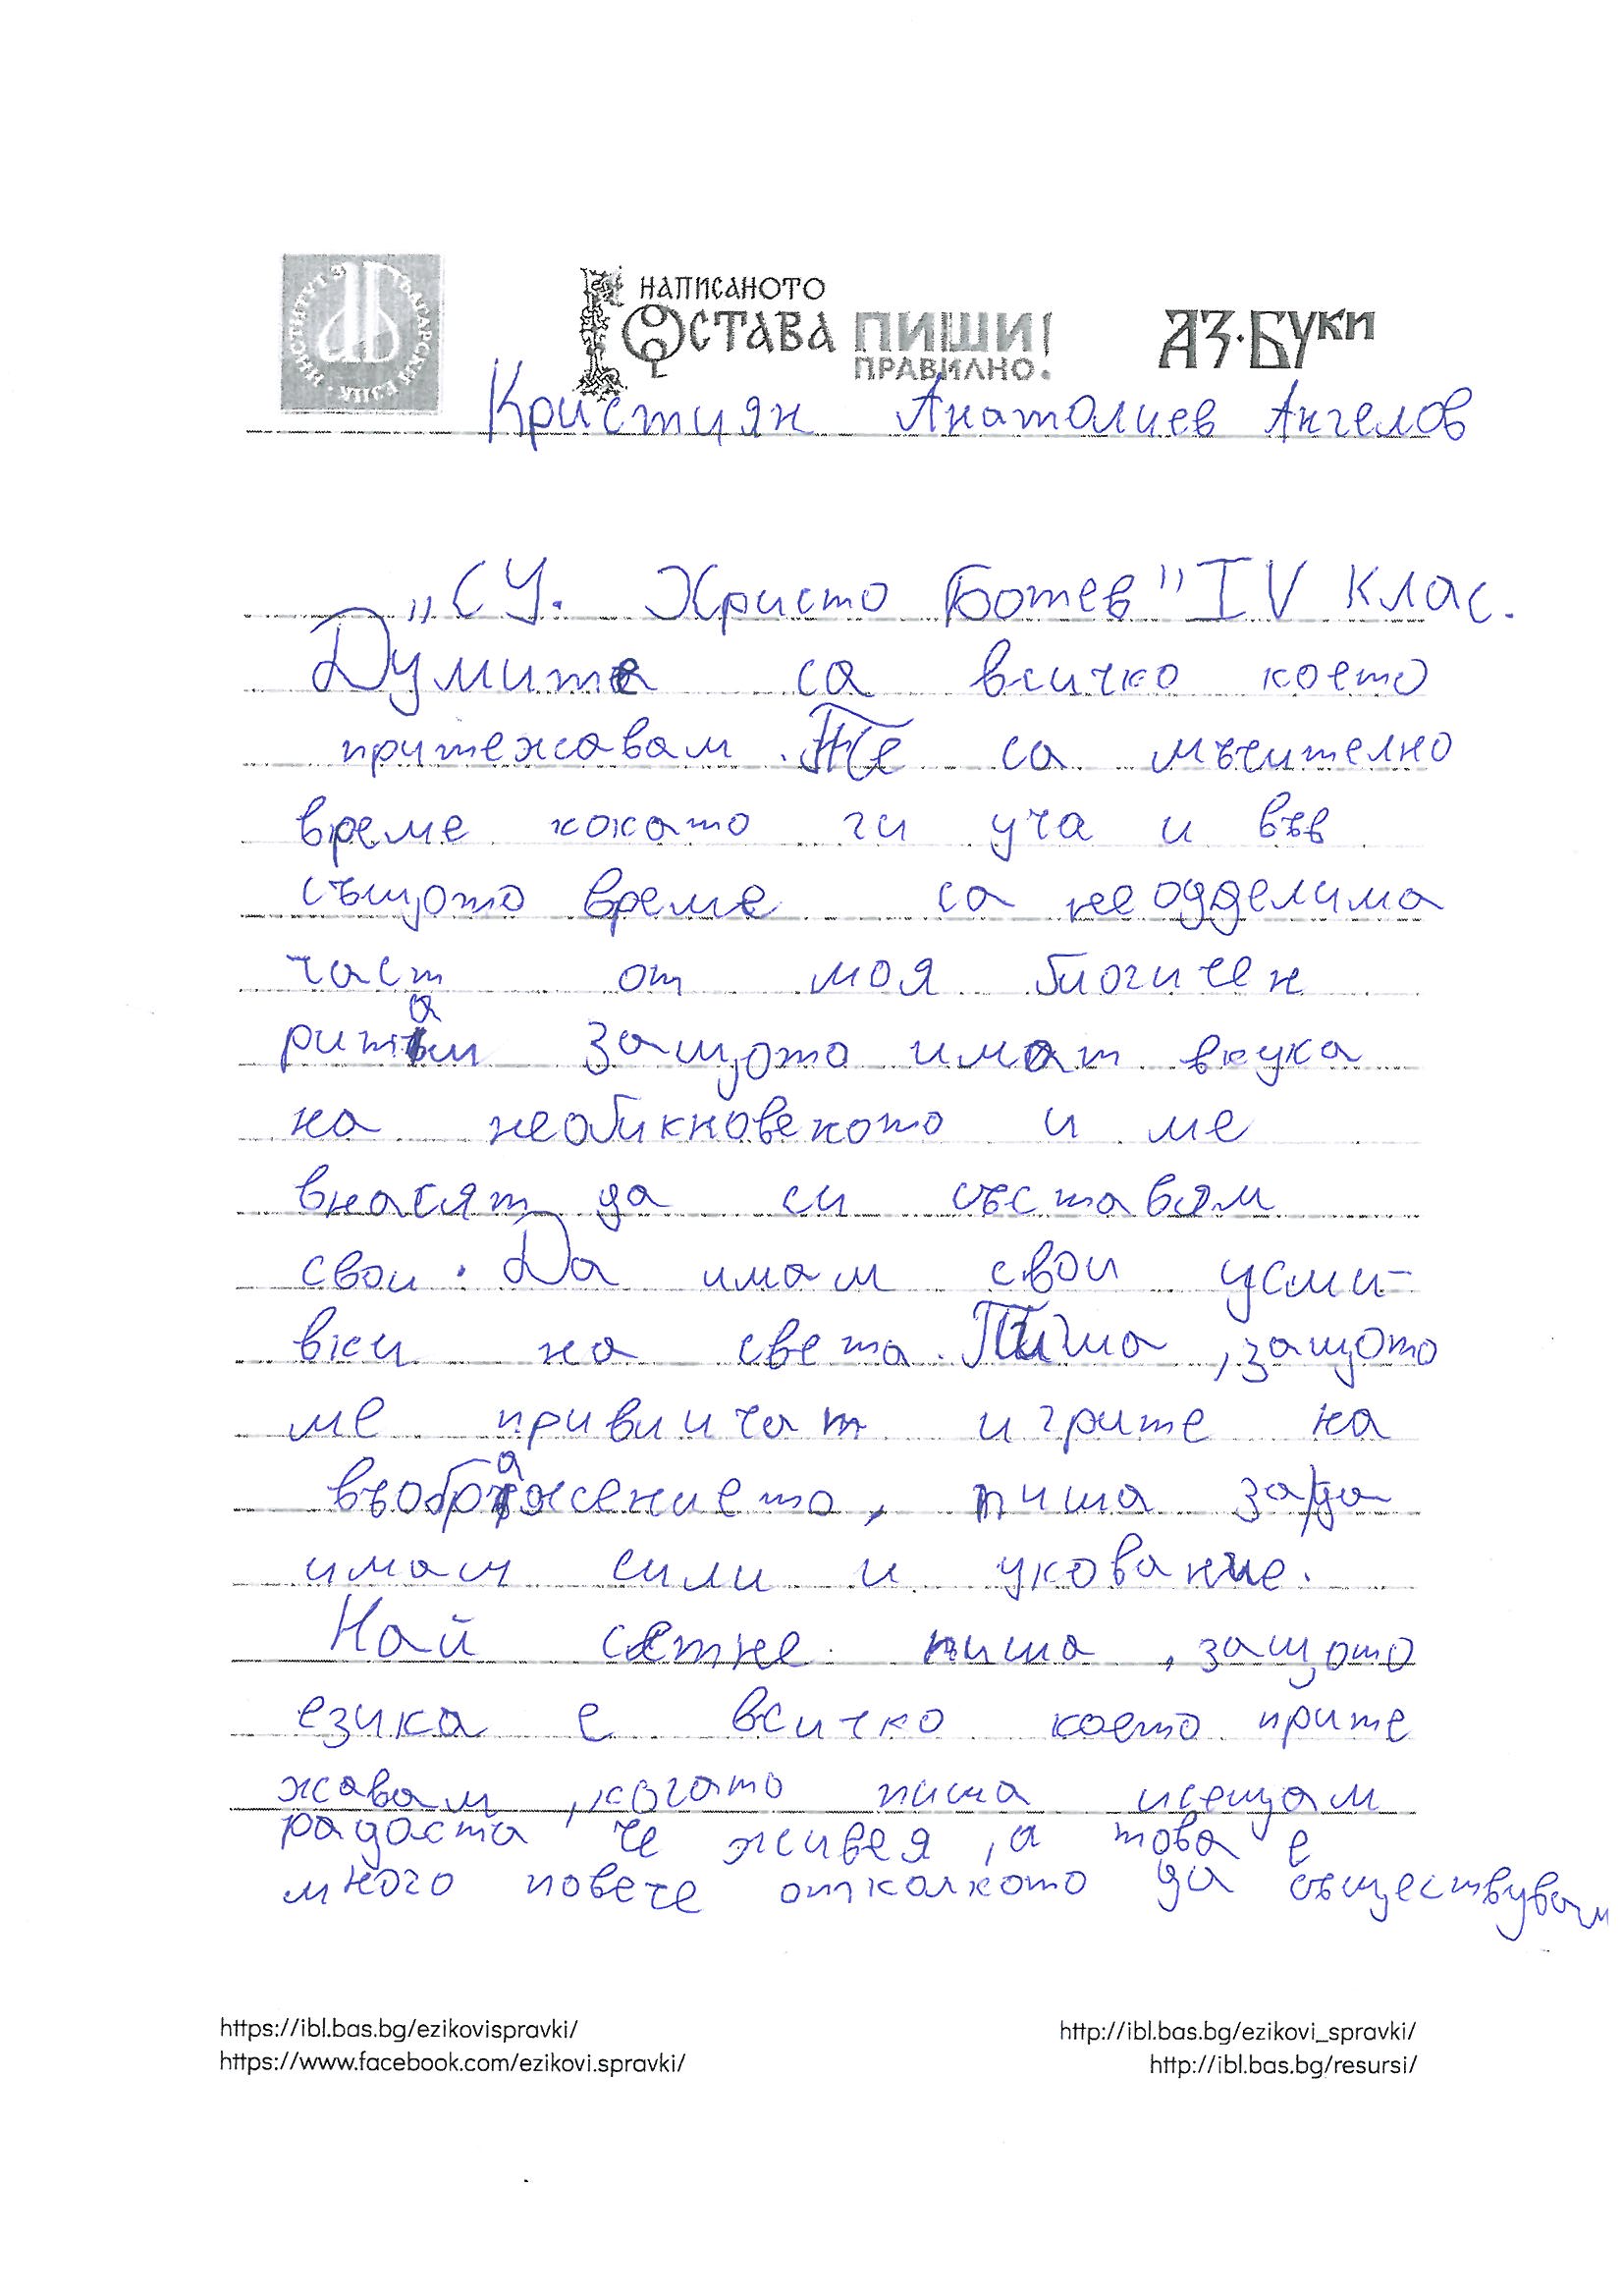 ИНСТИТУТ ЗА БЪЛГАРСКИ ЕЗИК
НАПИСАНОТО
ОСТАВА ПИШИ!
ПРАВИЛНО.
АЗ·БУКИ
Кристиян Анатолиев Ангелов
„СУ. Христо Ботев" IV клас.
Думите са всичко което
притежавам. Те са мъчително
време кокато ги уча и във
същото време са неодделима
част от моя биогичен
ритам Защото имат вкука
на необикновекото и ме
внасят да си съставям
свои. Да имам свои усми-
вки на света. Пиша ,защото
ме привличат игрите на
въображението, пиша за/да
имам сили и укование.
Най сетне пиша ,защото
езика е всичко което прите
жавам ,когато пиша исещам
радоста че живея ,а това е
много повече отколкото да съществувам
https://ibl.bas.bg/ezikovispravki/
http://ibl.bas.bg/ezikovi_spravki/
https://www.facebook.com/ezikovi.spravki/
http://ibl.bas.bg/resursi/